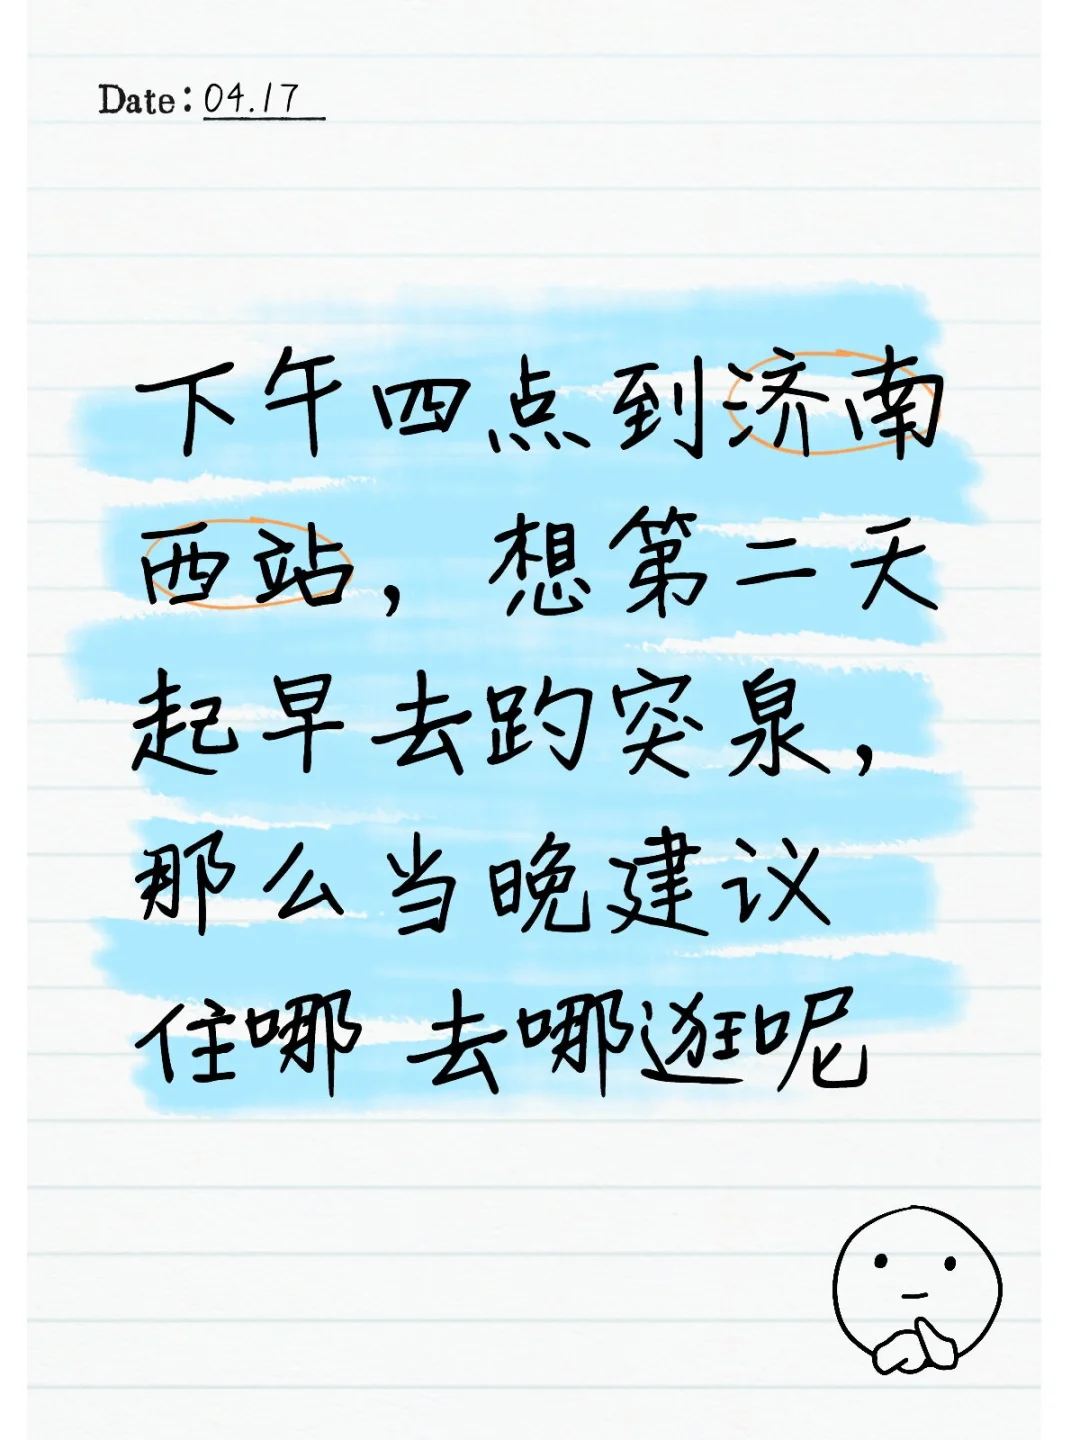 Date: 04.17
下午四点到济南
西站，想第二天
起早去趵突泉，
那么当晚建议
住哪 去哪逛呢